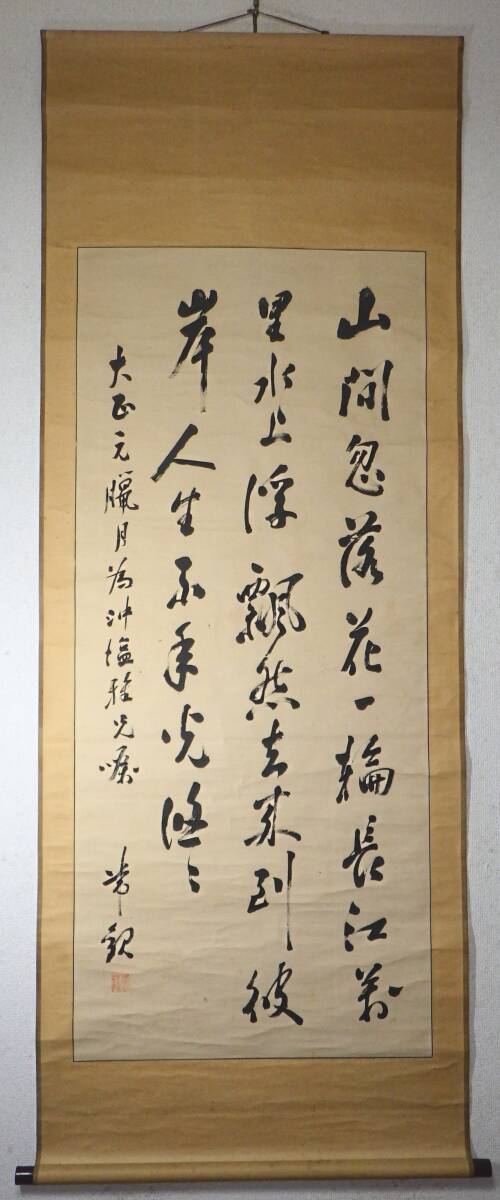 山間忽落花一輪長江萬
里水上浮飄然去来到彼
岸人生不年光悠々
大正元臘月為沖塩雅兄嘱
常観